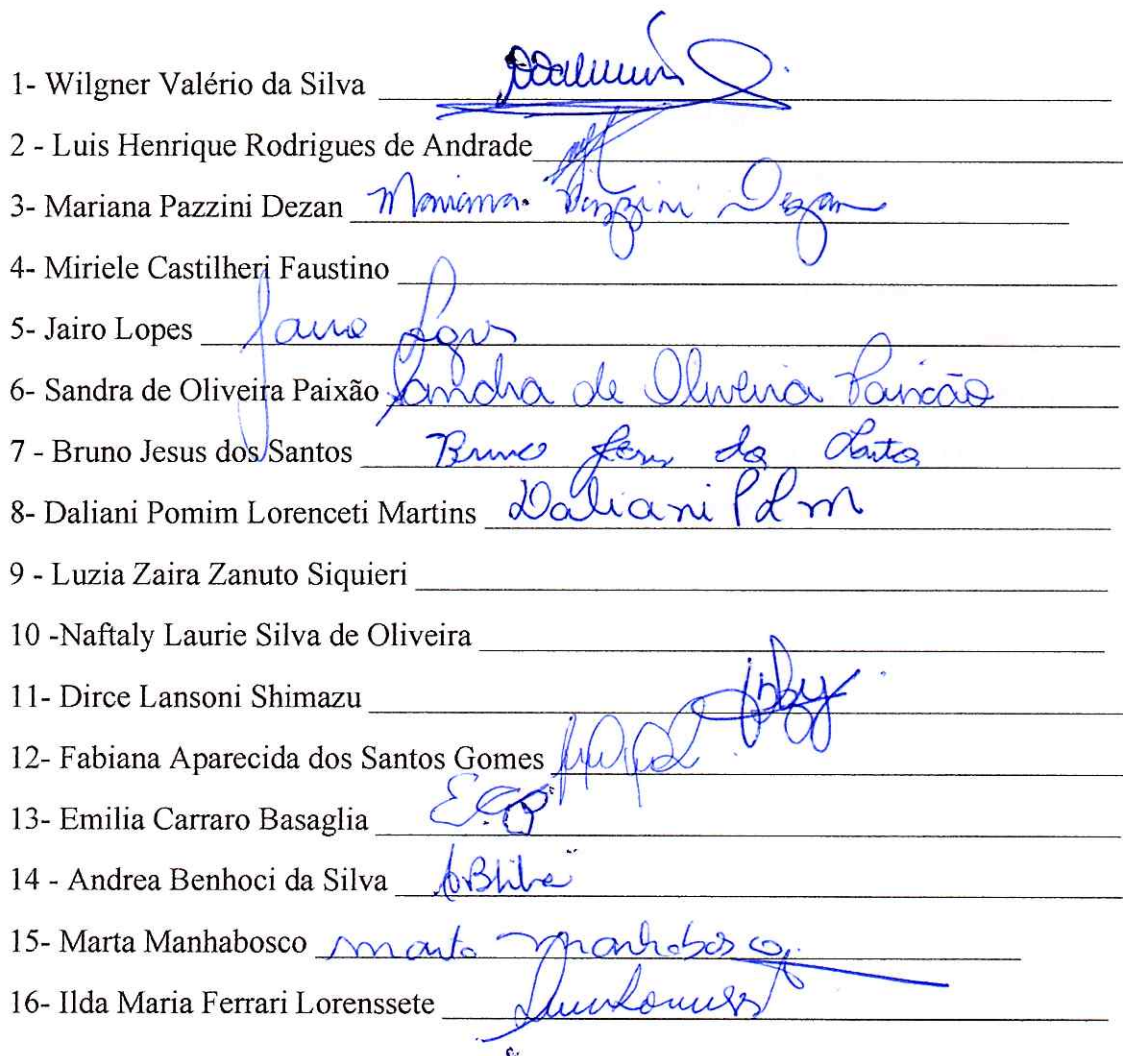 1- Wilgner Valério da Silva
2 - Luis Henrique Rodrigues de Andrade
3- Mariana Pazzini Dezan Mariana Pazzini Dezan
4- Miriele Castilheri Faustino
5- Jairo Lopes Jairo Lopes
6- Sandra de Oliveira Paixão Sandra de Oliveira Paixão
7 - Bruno Jesus dos Santos Bruno Jesus dos Santos
8- Daliani Pomim Lorenceti Martins Daliani P L M
9 - Luzia Zaira Zanuto Siquieri
10 -Naftaly Laurie Silva de Oliveira
11- Dirce Lansoni Shimazu
12- Fabiana Aparecida dos Santos Gomes
13- Emilia Carraro Basaglia
14 - Andrea Benhoci da Silva ABSilva
15- Marta Manhabosco Marta Manhabosco
16- Ilda Maria Ferrari Lorenssete